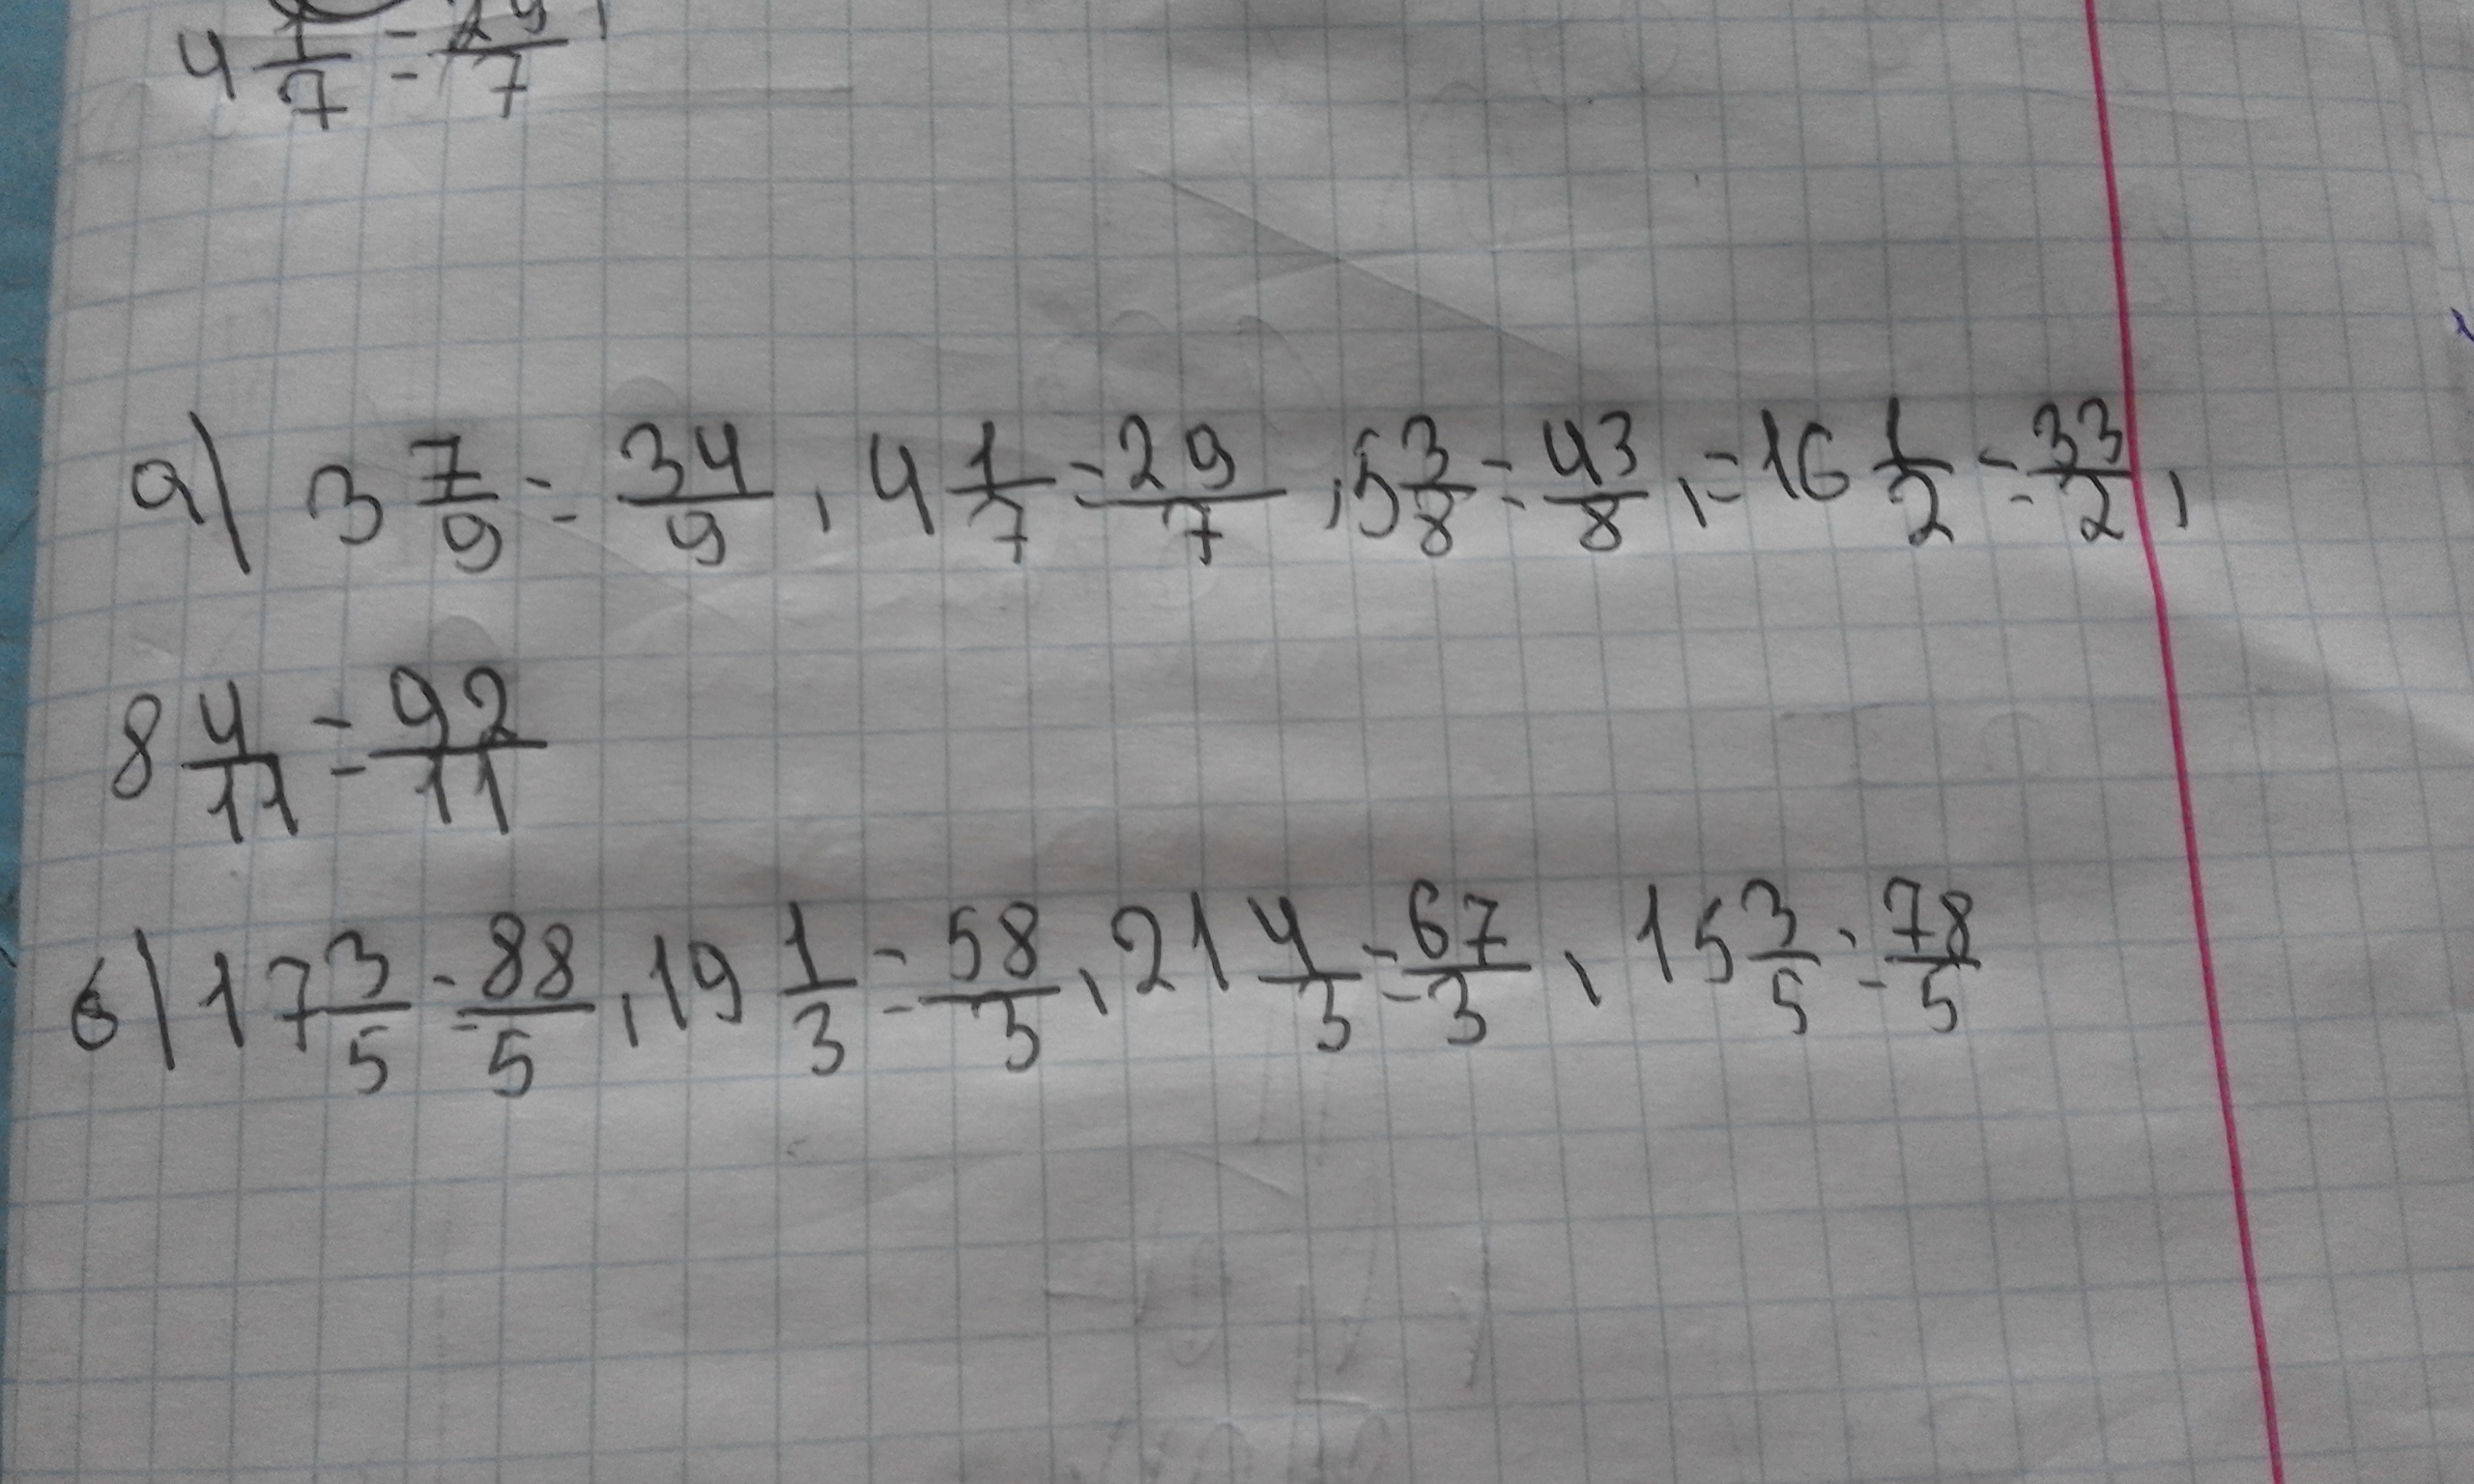 4 1/7 = 29/7
а) 3 7/9 = 34/9, 4 1/7 = 29/7, 5 3/8 = 43/8, = 16 1/2 = 33/2,
8 4/11 = 92/11
б) 17 3/5 = 88/5, 19 1/3 = 58/3, 21 4/3 = 67/3, 15 3/5 = 78/5